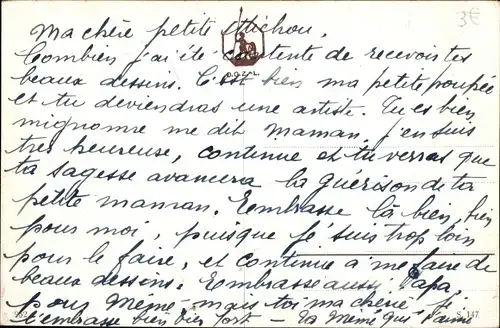 Ma chère petite Michou,
3€
Combien j'ai été contente de recevoir tes
beaux dessins. C'est bien ma petite poupée
et tu deviendras une artiste. Tu es bien
mignonne me dit Maman, j'en suis
très heureuse, continue et tu verras que
ta sagesse avancera la guérison de ta
petite maman. Embrasse la bien, bien
pour moi, puisque je suis trop loin
pour le faire, et continue à me faire de
beaux dessins. Embrasse aussi Papa,
pour Mémé - mais toi ma chérie je
t'embrasse bien bien fort - ta Mémé qui t'aime
S. 147